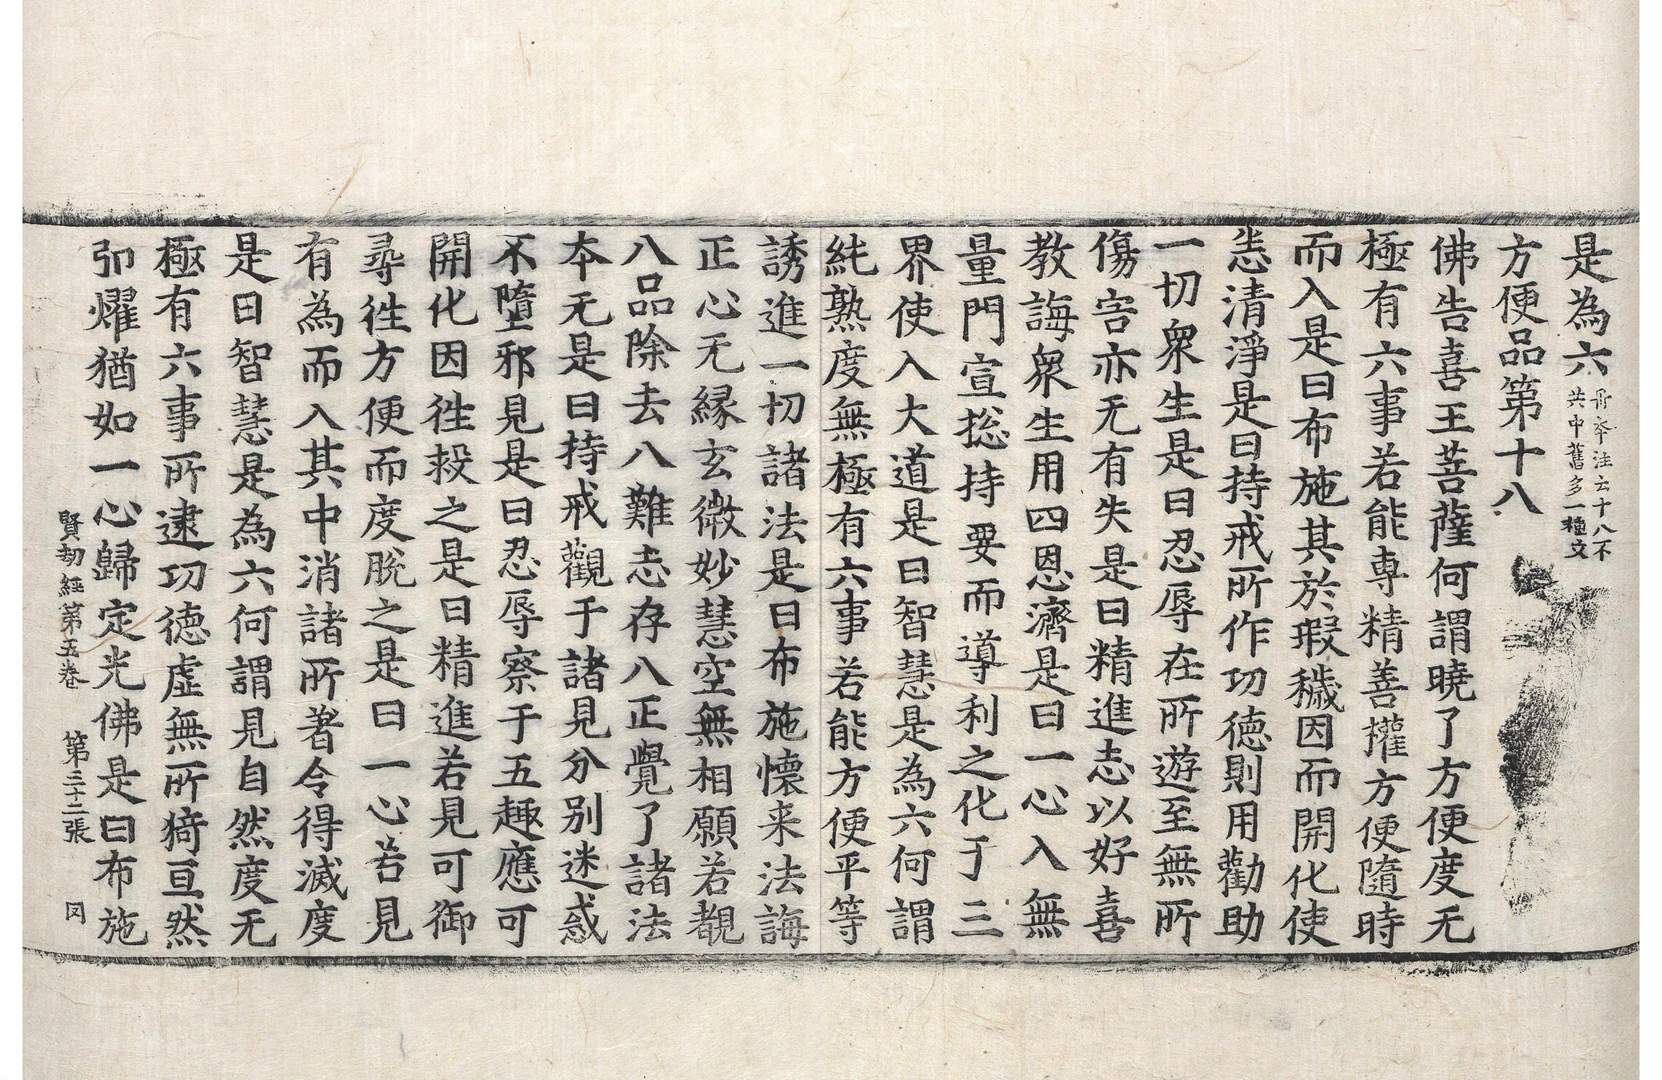 是為六丹夲注云十八不共中舊多一種文
方便品第十八
佛告喜王菩薩何謂曉了方便度无
極有六事若能專精善權方便隨時
而入是曰布施其於瑕穢因而開化使
恙清淨是曰持戒所作功德則用勸助
一切衆生是曰忍辱在所遊至無所
傷害亦无有失是曰精進志以好喜
教誨衆生用四恩濟是曰一心入無
量門宣揔持要而導利之化于三
界使入大道是曰智慧是為六何謂
純熟度無極有六事若能方便平等
誘進一切諸法是曰布施懷来法誨
正心无緣玄微妙慧空無相願若覩
八品除去八難志存八正覺了諸法
夲无是曰持戒觀于諸見分別迷惑
不墮邪見是曰忍辱察于五趣應可
開化因徃投之是曰精進若見可御
尋徃方便而度脫之是曰一心若見
有為而入其中消諸所著令得滅度
是曰智慧是為六何謂見自然度无
極有六事所逮功德虛無所猗亘然
卬燿猶如一心歸定光佛是曰布施
賢劫經第五卷 第三十二張 罔